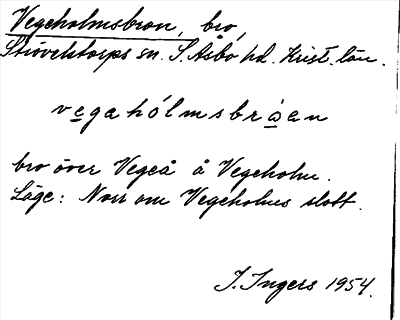 Vegeholmsbron, bro,
Strövelstorps sn. S. Åsbo hd. Krist. län.
vegahólmsbrǫen
bro över Vegeå å Vegeholm.
Läge: Norr om Vegeholms slott.
I. Ingers 1954.